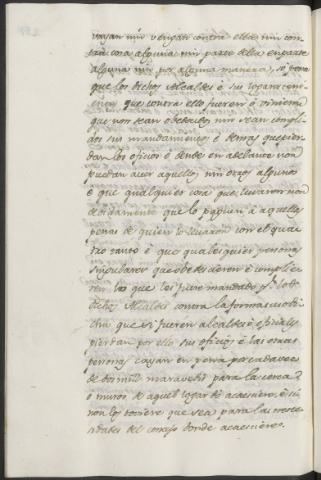 vayan nin vengan contra ella nin con
tra cosa alguna nin parte della en parte
alguna nin por alguna manera, so pena
que los dichos Alcaldes è sus logares tenien
que contra ello fueren ò vinieren
que non sean obedecidos nin sean compli
dos sus mandamientos è demas que pier
dan los oficios è dende en adelante non
puedan aver aquellos nin otros algunos
è que qualquier cosa que llevaron non
debidamente que lo paguen à aquella
persona de quien lo llevaron con el qua
tro tanto è que qualesquier personas
singulares que obedecieren è complie
ren los que los fuere mandado por los
dichos Alcaldes contra la forma susodi
cha que si fueren alcaldes è oficiales
pierdan por ello sus oficios è las otras
personas cayan en pena por cada vez
de dos mill maravedis para la cerca
ò muros de aquel logar dò acaesciere, è si
non los toviere que sea para las neces
idades del concejo donde acaesciere.